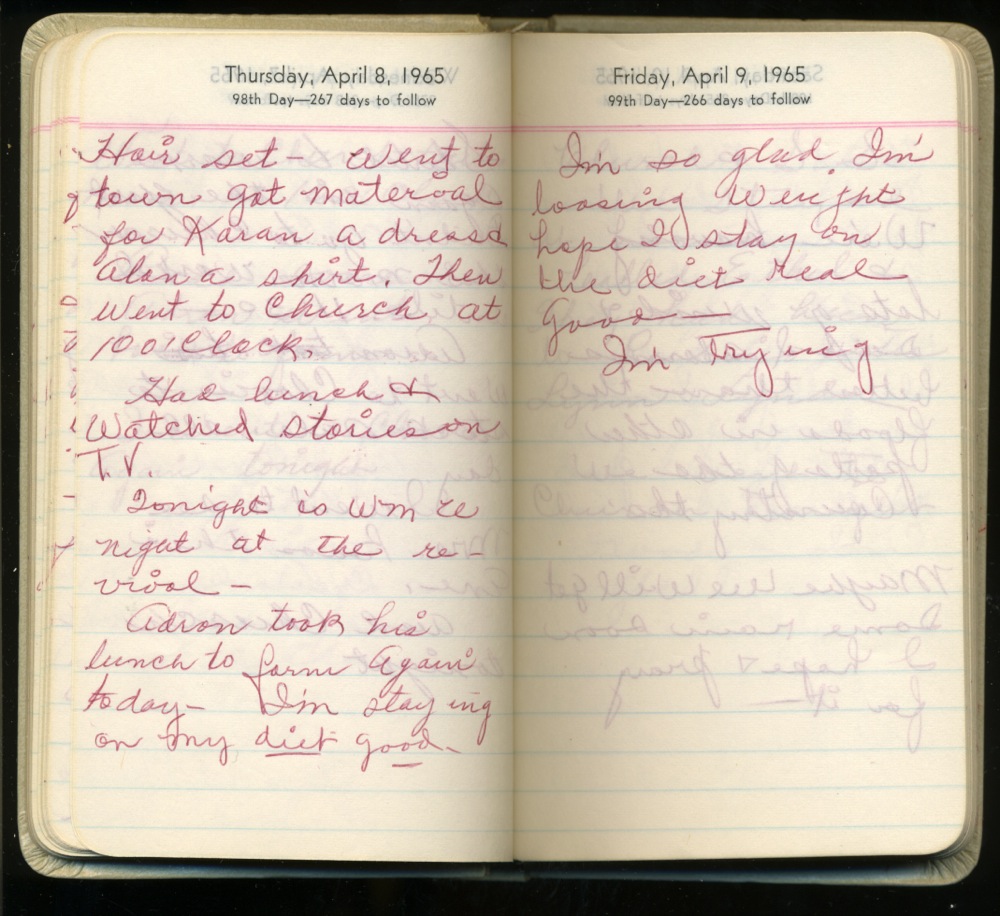 Thursday, April 8, 1965
98th Day—267 days to follow
Hair set – went to
town got material
for Karan a dress
Alan a shirt. Then
went to Church at
10 O'Clock.
Had lunch &
Watched stories on
T.V.
Tonight is Wm re
night at the re-
vival –
Adron took his
lunch to farm Again
today – I'm staying
on my diet good –
Friday, April 9, 1965
99th Day—266 days to follow
I'm so glad I'm
loosing Weight
hope I stay on
the diet real
Good —
I'm Trying